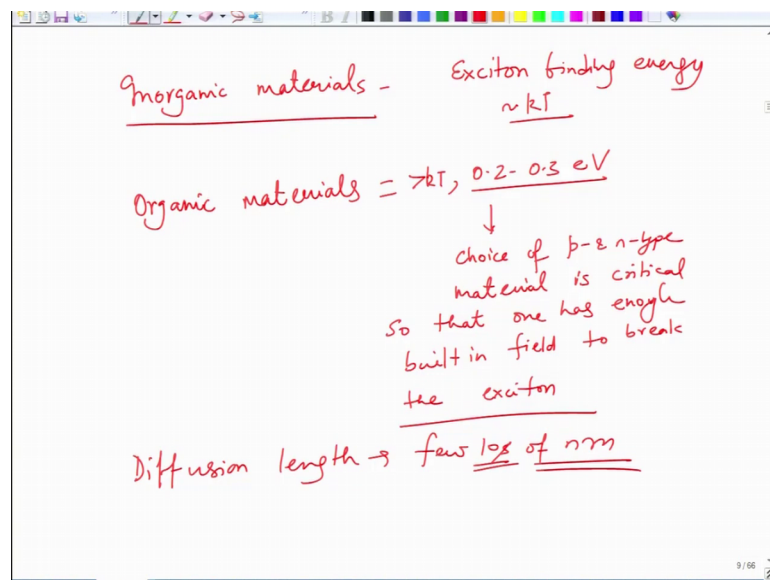 Inorganic materials - Exciton binding energy
~ kT
Organic materials = >kT, 0.2- 0.3 eV
↓
choice of p- & n-type
material is critical
so that one has enogh
built in field to break
the exciton
Diffusion length → few 10s of nm
9 / 66